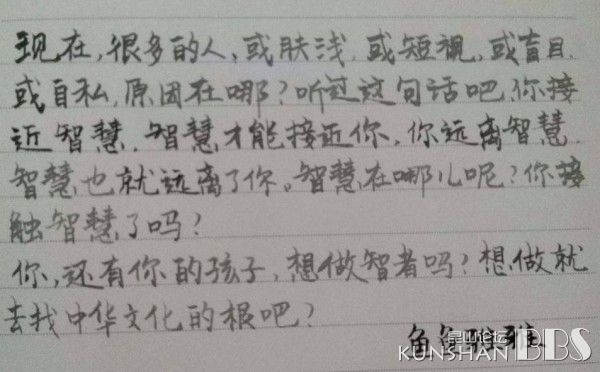 现在,很多的人,或肤浅,或短视,或盲目,
或自私,原因在哪?听过这句话吧,你接
近智慧,智慧才能接近你,你远离智慧,
智慧也就远离了你。智慧在哪儿呢?你接
触智慧了吗?
你,还有你的孩子,想做智者吗?想做就
去找中华文化的根吧?
昆山论坛
KUNSHAN BBS